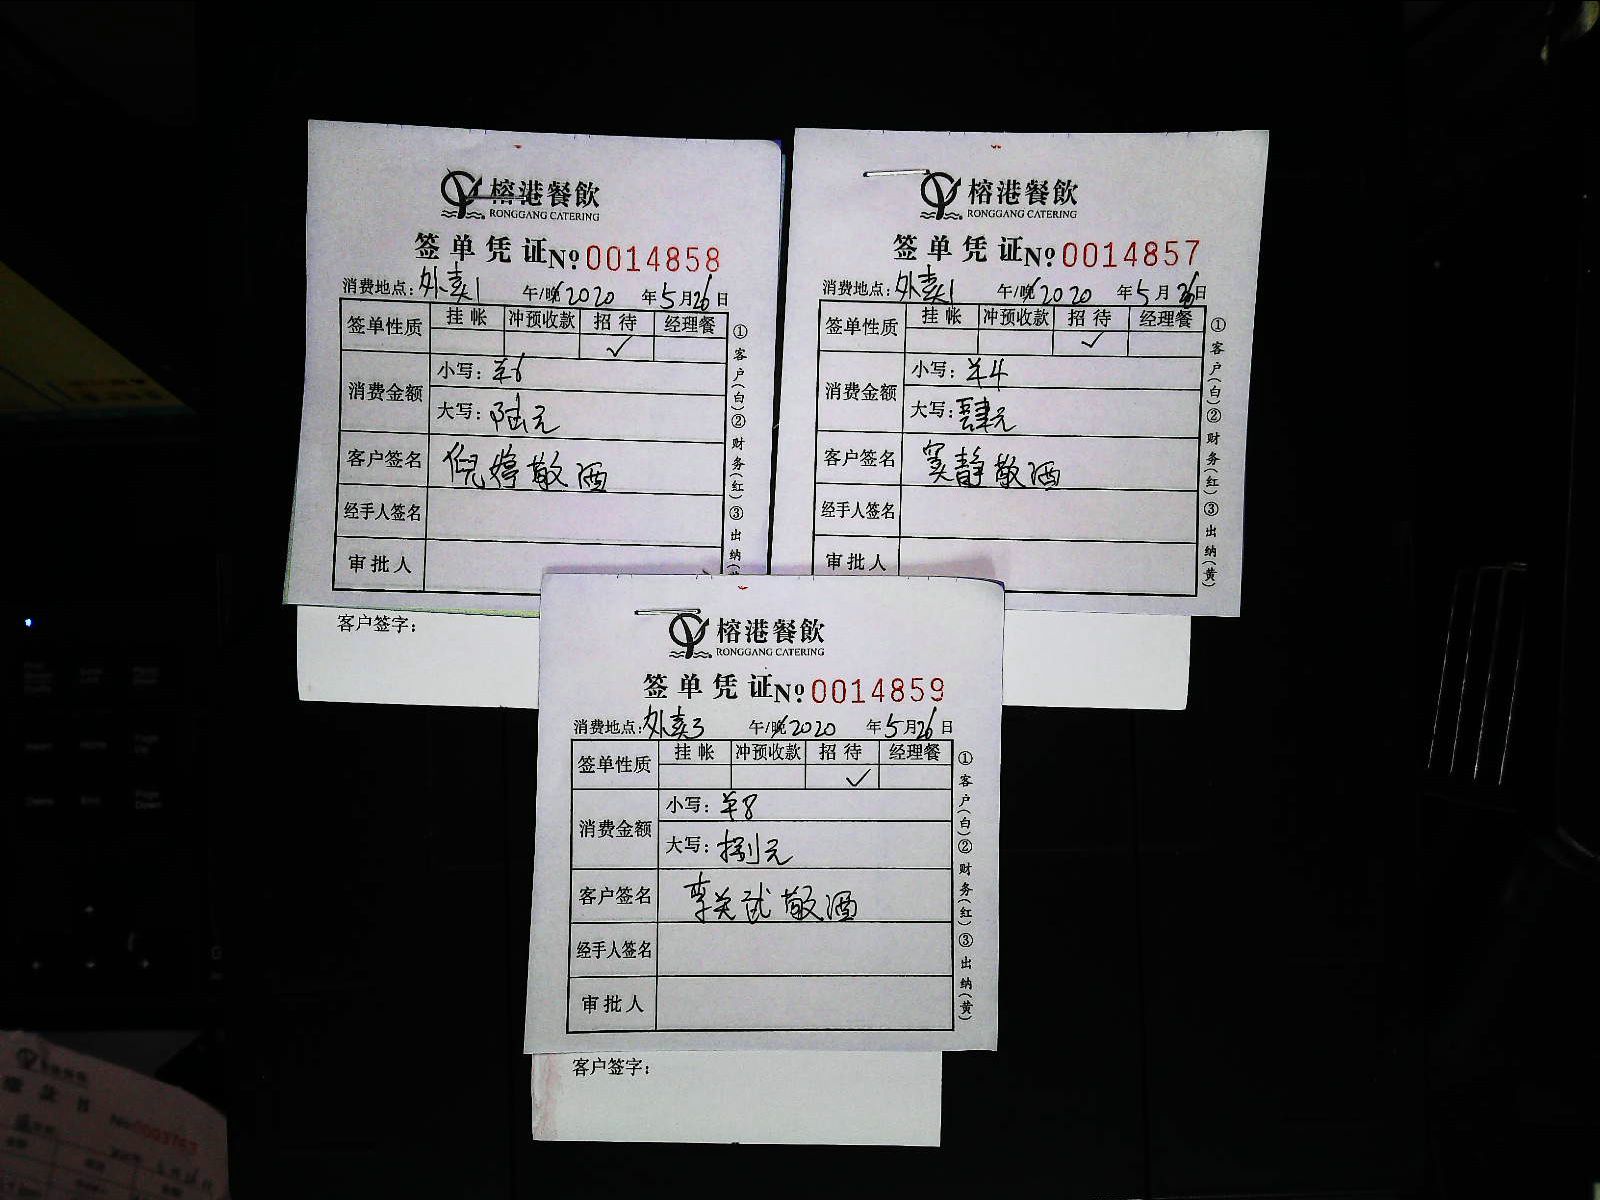 榕港餐飲
RONGGANG CATERING
签单凭证 № 0014858
消费地点：外卖1 午/晚 2020 年 5 月 26 日
签单性质 挂帐 冲预收款 招待 经理餐
✓
消费金额 小写：¥6
大写：陆元
客户签名 倪婷敬酒
经手人签名
审批人
①客户(白)②财务(红)③出纳(黄)
客户签字：
榕港餐飲
RONGGANG CATERING
签单凭证 № 0014857
消费地点：外卖1 午/晚 2020 年 5 月 26 日
签单性质 挂帐 冲预收款 招待 经理餐
✓
消费金额 小写：¥4
大写：肆元
客户签名 窦静敬酒
经手人签名
审批人
①客户(白)②财务(红)③出纳(黄)
榕港餐飲
RONGGANG CATERING
签单凭证 № 0014859
消费地点：外卖3 午/晚 2020 年 5 月 26 日
签单性质 挂帐 冲预收款 招待 经理餐
✓
消费金额 小写：¥8
大写：捌元
客户签名 李关斌敬酒
经手人签名
审批人
①客户(白)②财务(红)③出纳(黄)
客户签字：